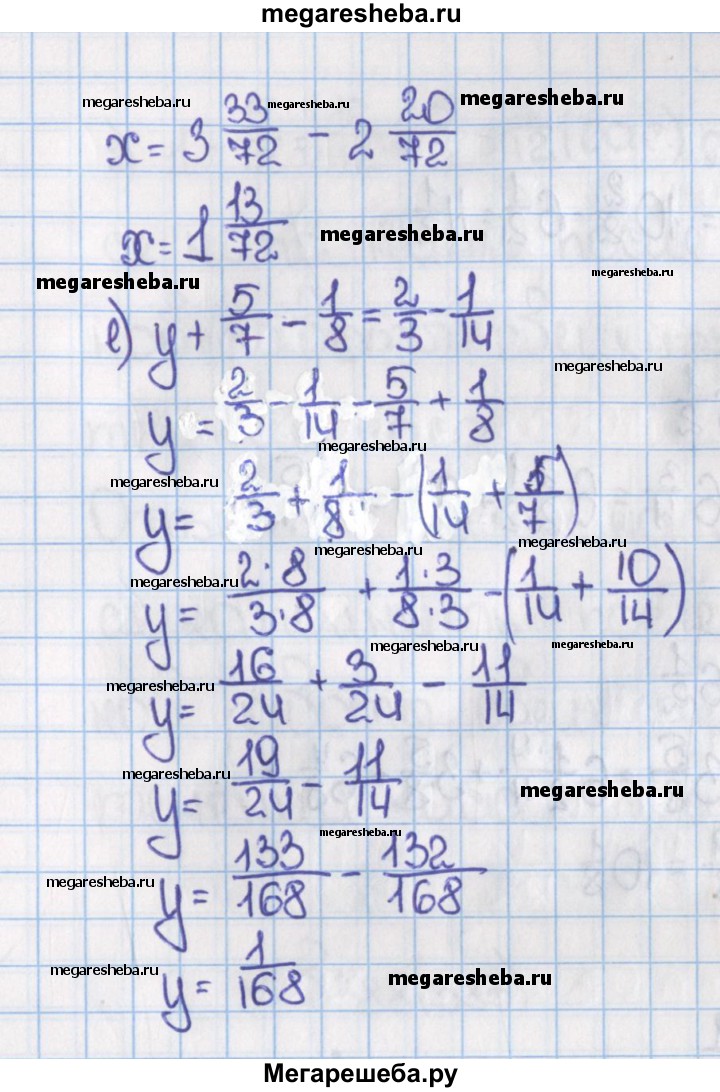 megaresheba.ru
megaresheba.ru megaresheba.ru megaresheba.ru
x = 3 33/72 - 2 20/72
x = 1 13/72 megaresheba.ru
megaresheba.ru megaresheba.ru
е) y + 5/7 - 1/8 = 2/3 - 1/14
megaresheba.ru
y = 2/3 - 1/14 - 5/7 + 1/8
megaresheba.ru
megaresheba.ru
y = 2/3 + 1/8 - (1/14 + 5/7)
megaresheba.ru megaresheba.ru
megaresheba.ru
y = 2·8/3·8 + 1·3/8·3 - (1/14 + 10/14)
megaresheba.ru megaresheba.ru
y = 16/24 + 3/24 - 11/14
megaresheba.ru megaresheba.ru
y = 19/24 - 11/14
megaresheba.ru
megaresheba.ru
y = 133/168 - 132/168
megaresheba.ru megaresheba.ru
y = 1/168
Мегарешеба.ру